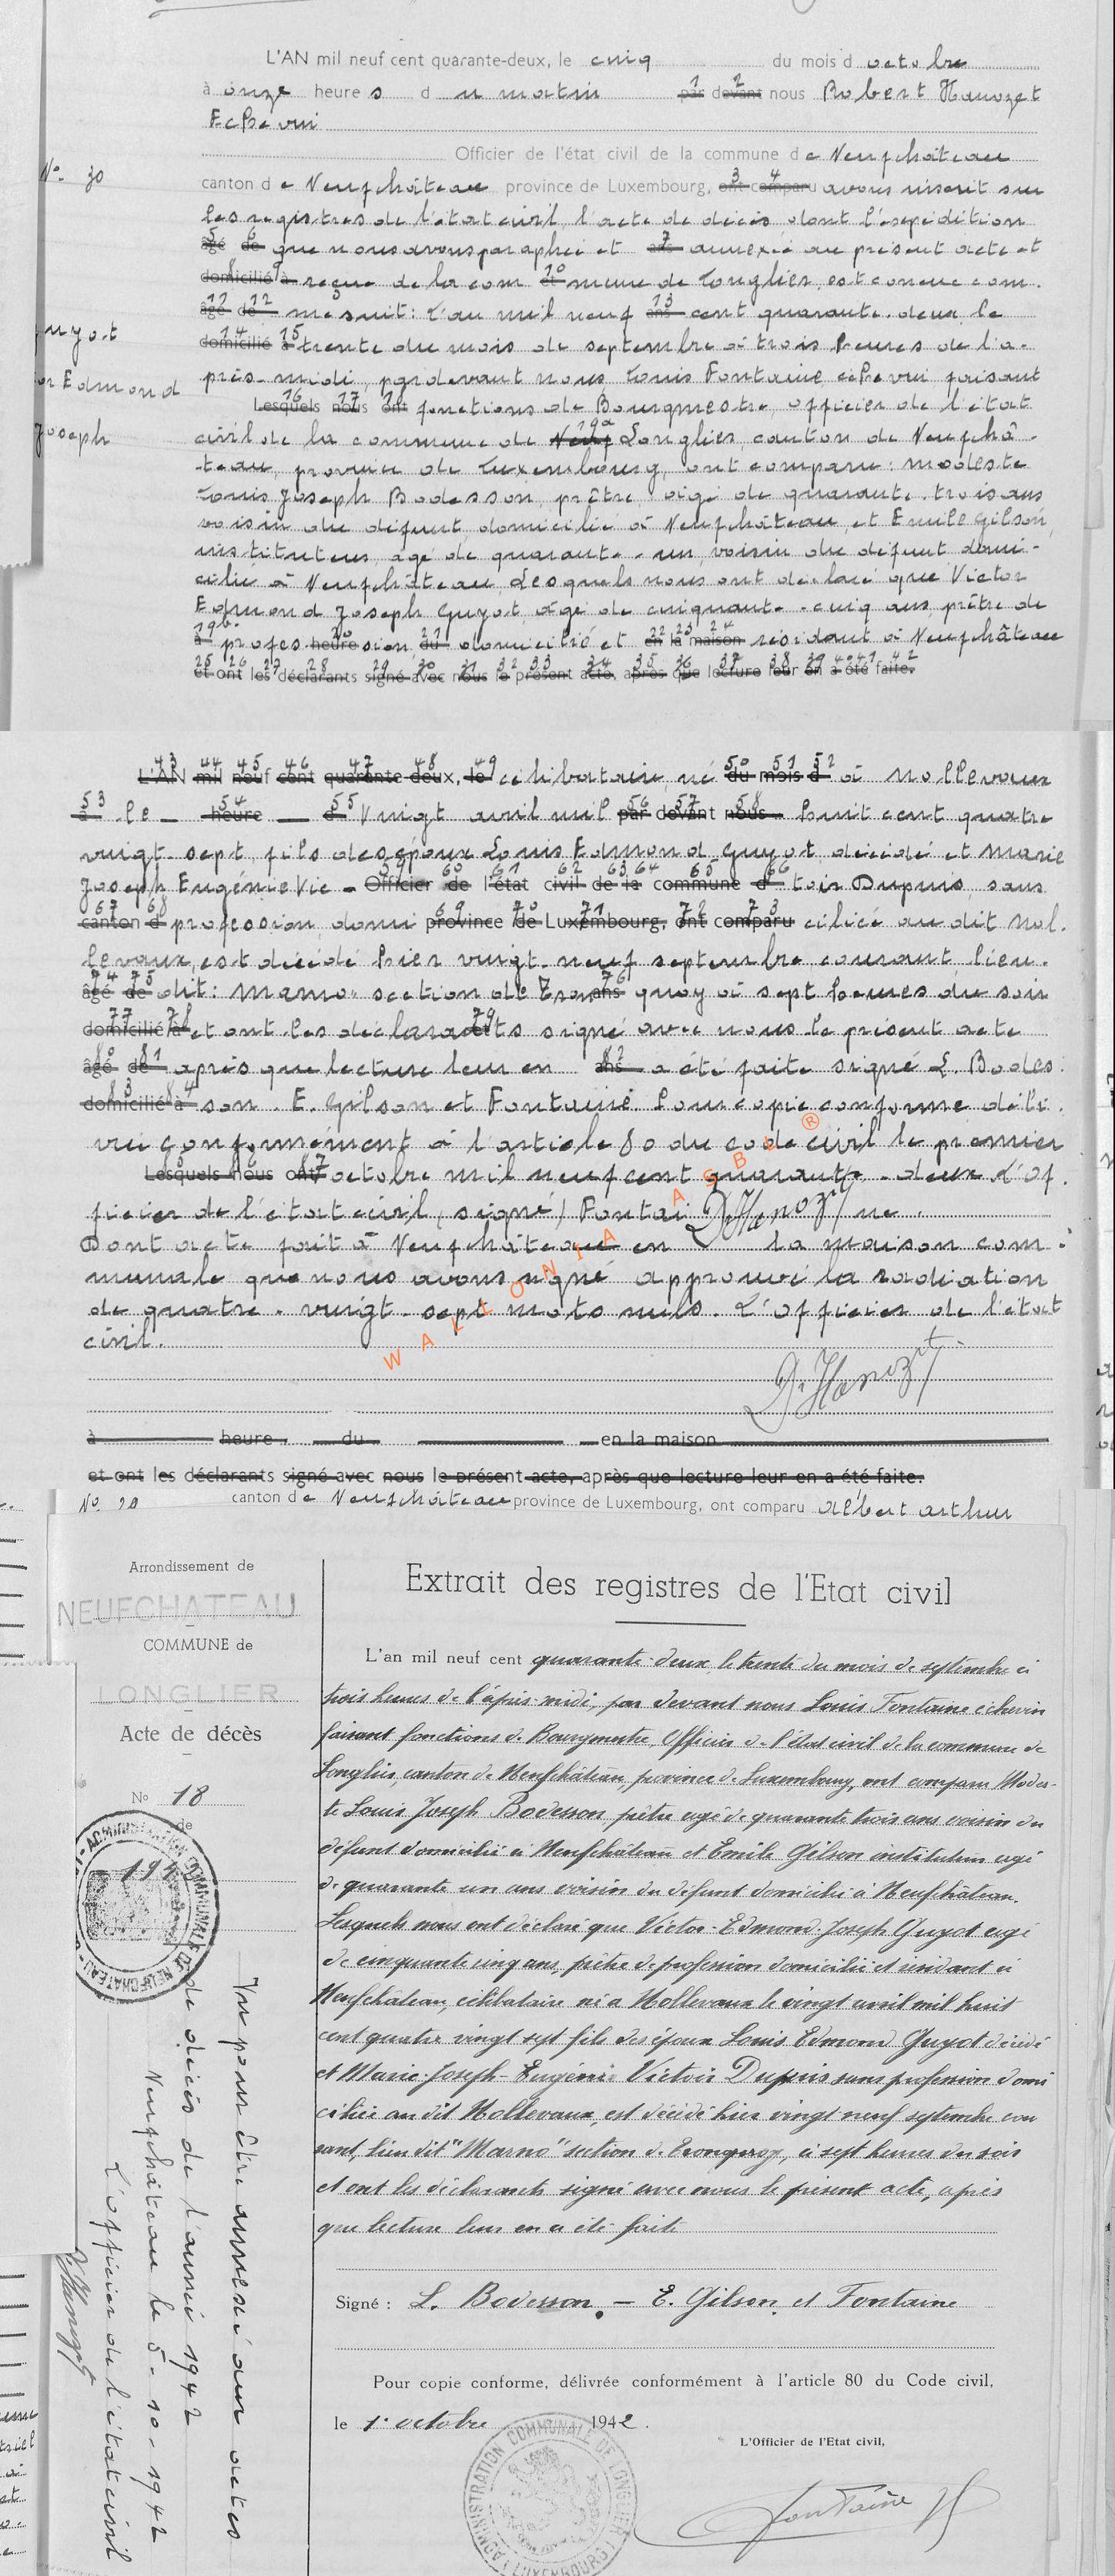 L'AN mil neuf cent quarante-deux, le cinq du mois d octobre
à onze heure s d u matin par devant nous Robert Hanozet
Echevin
Officier de l'état civil de la commune de Neufchâteau
No. 30
canton de Neufchâteau province de Luxembourg, ont comparu avons inscrit sur
les registres de l'état civil, l'acte de décès dont l'expédition
âgé de que nous avons paraphée et ans annexée au présent acte et
domicilié à reçue de la com et mune de Longlier, est conçue com.
âgé de me suit: L'an mil neuf ans cent quarante-deux le
domicilié à trente du mois de septembre à trois heures de l'a-
uyot
près-midi, pardevant nous Louis Fontaine echevin faisant
or Edmond
Lesquels nous ont fonctions de Bourgmestre, officier de l'état
Joseph
civil de la commune de Neuf Longlier, canton de Neufchâ-
-teau, province de Luxembourg, ont comparu: modeste
Louis Joseph Bodesson, prêtre âgé de quarante-trois ans
voisin du défunt, domicilié à Neufchâteau, et Emile Gilson,
instituteur âgé de quarante-un, voisin du défunt domi-
cilié à Neufchâteau, Lesquels nous ont déclaré que Victor
Edmond Joseph Guyot, âgé de cinquante-cinq ans, prêtre de
à profes heure sion du domicilié et en la maison résidant à Neufchâteau
et ont les déclarants signé avec nous le présent acte, après que lecture leur en a été faite.
L'AN mil neuf cent quarante deux, le célibataire, né du mois d à Nollevaux
à le heure d Vingt avril mil par devant nous huit cent quatre
vingt-sept, fils des époux Louis Edmond Guyot, décédé et Marie
Joseph Eugénie Vic- Officier de l'état civil de la commune d toir Dupuis, sans
canton d profession, domi province de Luxembourg, ont comparu ciliée au dit Nol.
levaux, est décédé hier vingt-neuf septembre courant, lieu.
âgé de dit: Marno" section de Tron ans quoy à sept heures du soir
domicilié à et ont les déclarants signé avec nous le présent acte
âgé de après que lecture leur en ans a été faite signé L. Bodes.
domicilié à son. E. Gilson et Fontaine. Pour copie conforme déli.
vré conformément à l'article 80 du code civil le premier
Lesquels nous ont octobre mil neuf cent quarante-deux L'of.
ficier de l'état civil (signé) Fontai D. Hanozet ne.
Dont acte fait à Neufchâteau en la maison com.
munale que nous avons signé approuvé la radiation
de quatre-vingt-sept mots nuls. L'officier de l'état
civil.
WALLONIA ASBL ®
D. Hanozet
à heure du en la maison
et ont les déclarants signé avec nous le présent acte, après que lecture leur en a été faite.
canton de Neufchâteau province de Luxembourg, ont comparu Albert Arthur
Arrondissement de
NEUFCHATEAU
COMMUNE de
LONGLIER
Acte de décès
No 18
de
194
ADMINISTRATION COMMUNALE DE NEUFCHATEAU
Vu pour être annexé aux actes
de décès de l'année 1942
Neufchâteau le 5-10-1942
L'officier de l'état civil
D. Hanozet
Extrait des registres de l'Etat civil
L'an mil neuf cent quarante-deux, le trente du mois de septembre à
trois heures de l'après-midi, par devant nous Louis Fontaine échevin
faisant fonctions de Bourgmestre, Officier de l'état civil de la commune de
Longlier, canton de Neufchâteau, province de Luxembourg, ont comparu Modes-
te Louis Joseph Bodesson, prêtre âgé de quarante trois ans voisin du
défunt domicilié à Neufchâteau et Emile Gilson instituteur âgé
de quarante un ans voisin du défunt domicilié à Neufchâteau.
Lesquels nous ont déclaré que Victor-Edmond-Joseph Guyot âgé
de cinquante cinq ans, prêtre de profession domicilié et résidant à
Neufchâteau, célibataire né à Nollevaux le vingt avril mil huit
cent quatre vingt sept fils des époux Louis Edmond Guyot décédé
et Marie-Joseph-Eugénie Victoir Dupuis sans profession domi
ciliée au dit Nollevaux, est décédé hier vingt neuf septembre cou
rant, lieu dit "Marno" section de Tronquoy, à sept heures du soir
et ont les déclarants signé avec nous le présent acte, après
que lecture leur en a été faite
Signé : L. Bodesson. — E. Gilson et Fontaine
Pour copie conforme, délivrée conformément à l'article 80 du Code civil,
le 1er octobre 1942.
L'Officier de l'Etat civil,
ADMINISTRATION COMMUNALE DE LONGLIER (LUXEMBOURG)
Fontaine